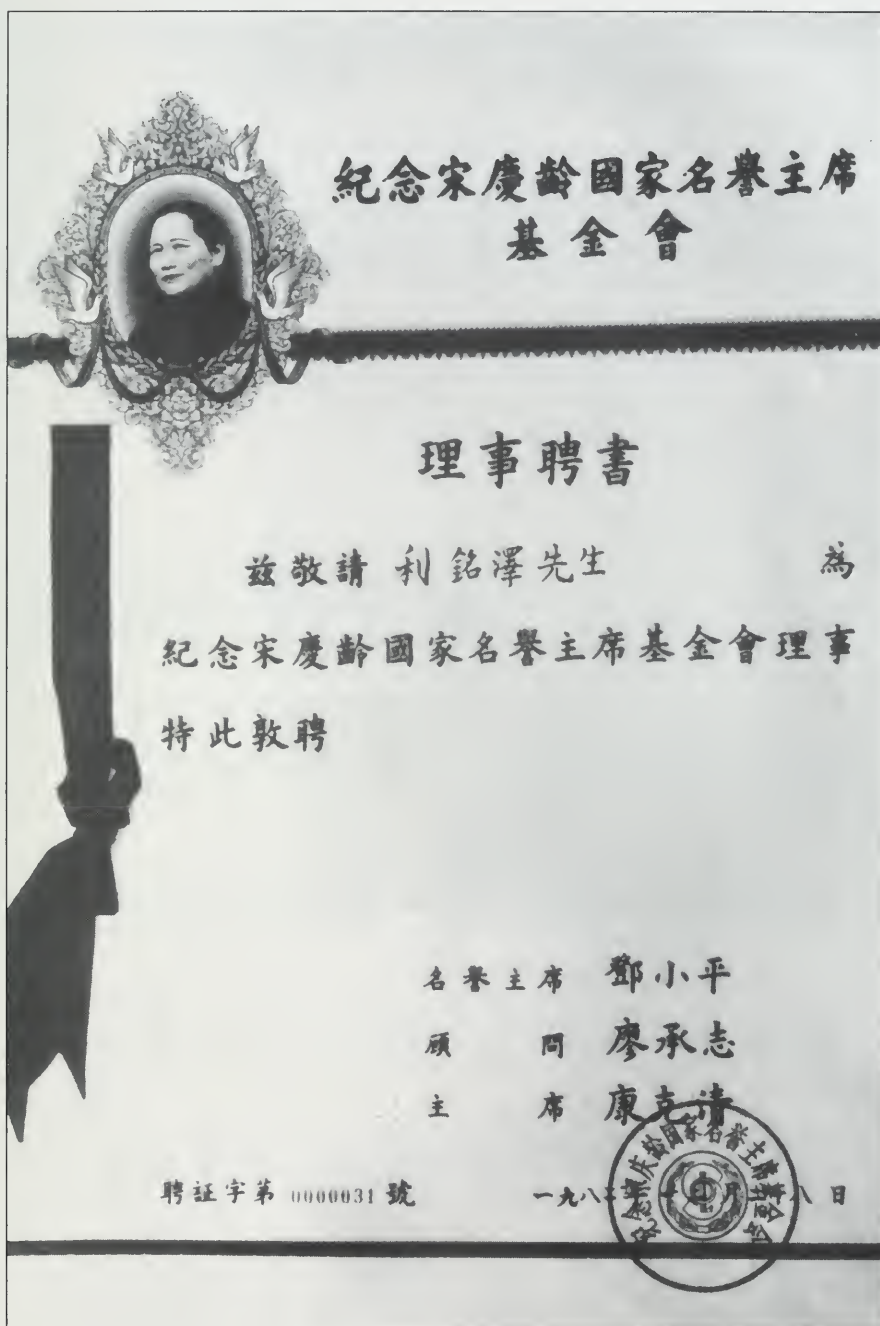 紀念宋慶齡國家名譽主席
基金會
理事聘書
茲敬請 利銘澤先生 為
紀念宋慶齡國家名譽主席基金會理事
特此敦聘
名譽主席 鄧小平
顧問 廖承志
主席 康克清
聘証字第 0000031 號
一九八 月 八日